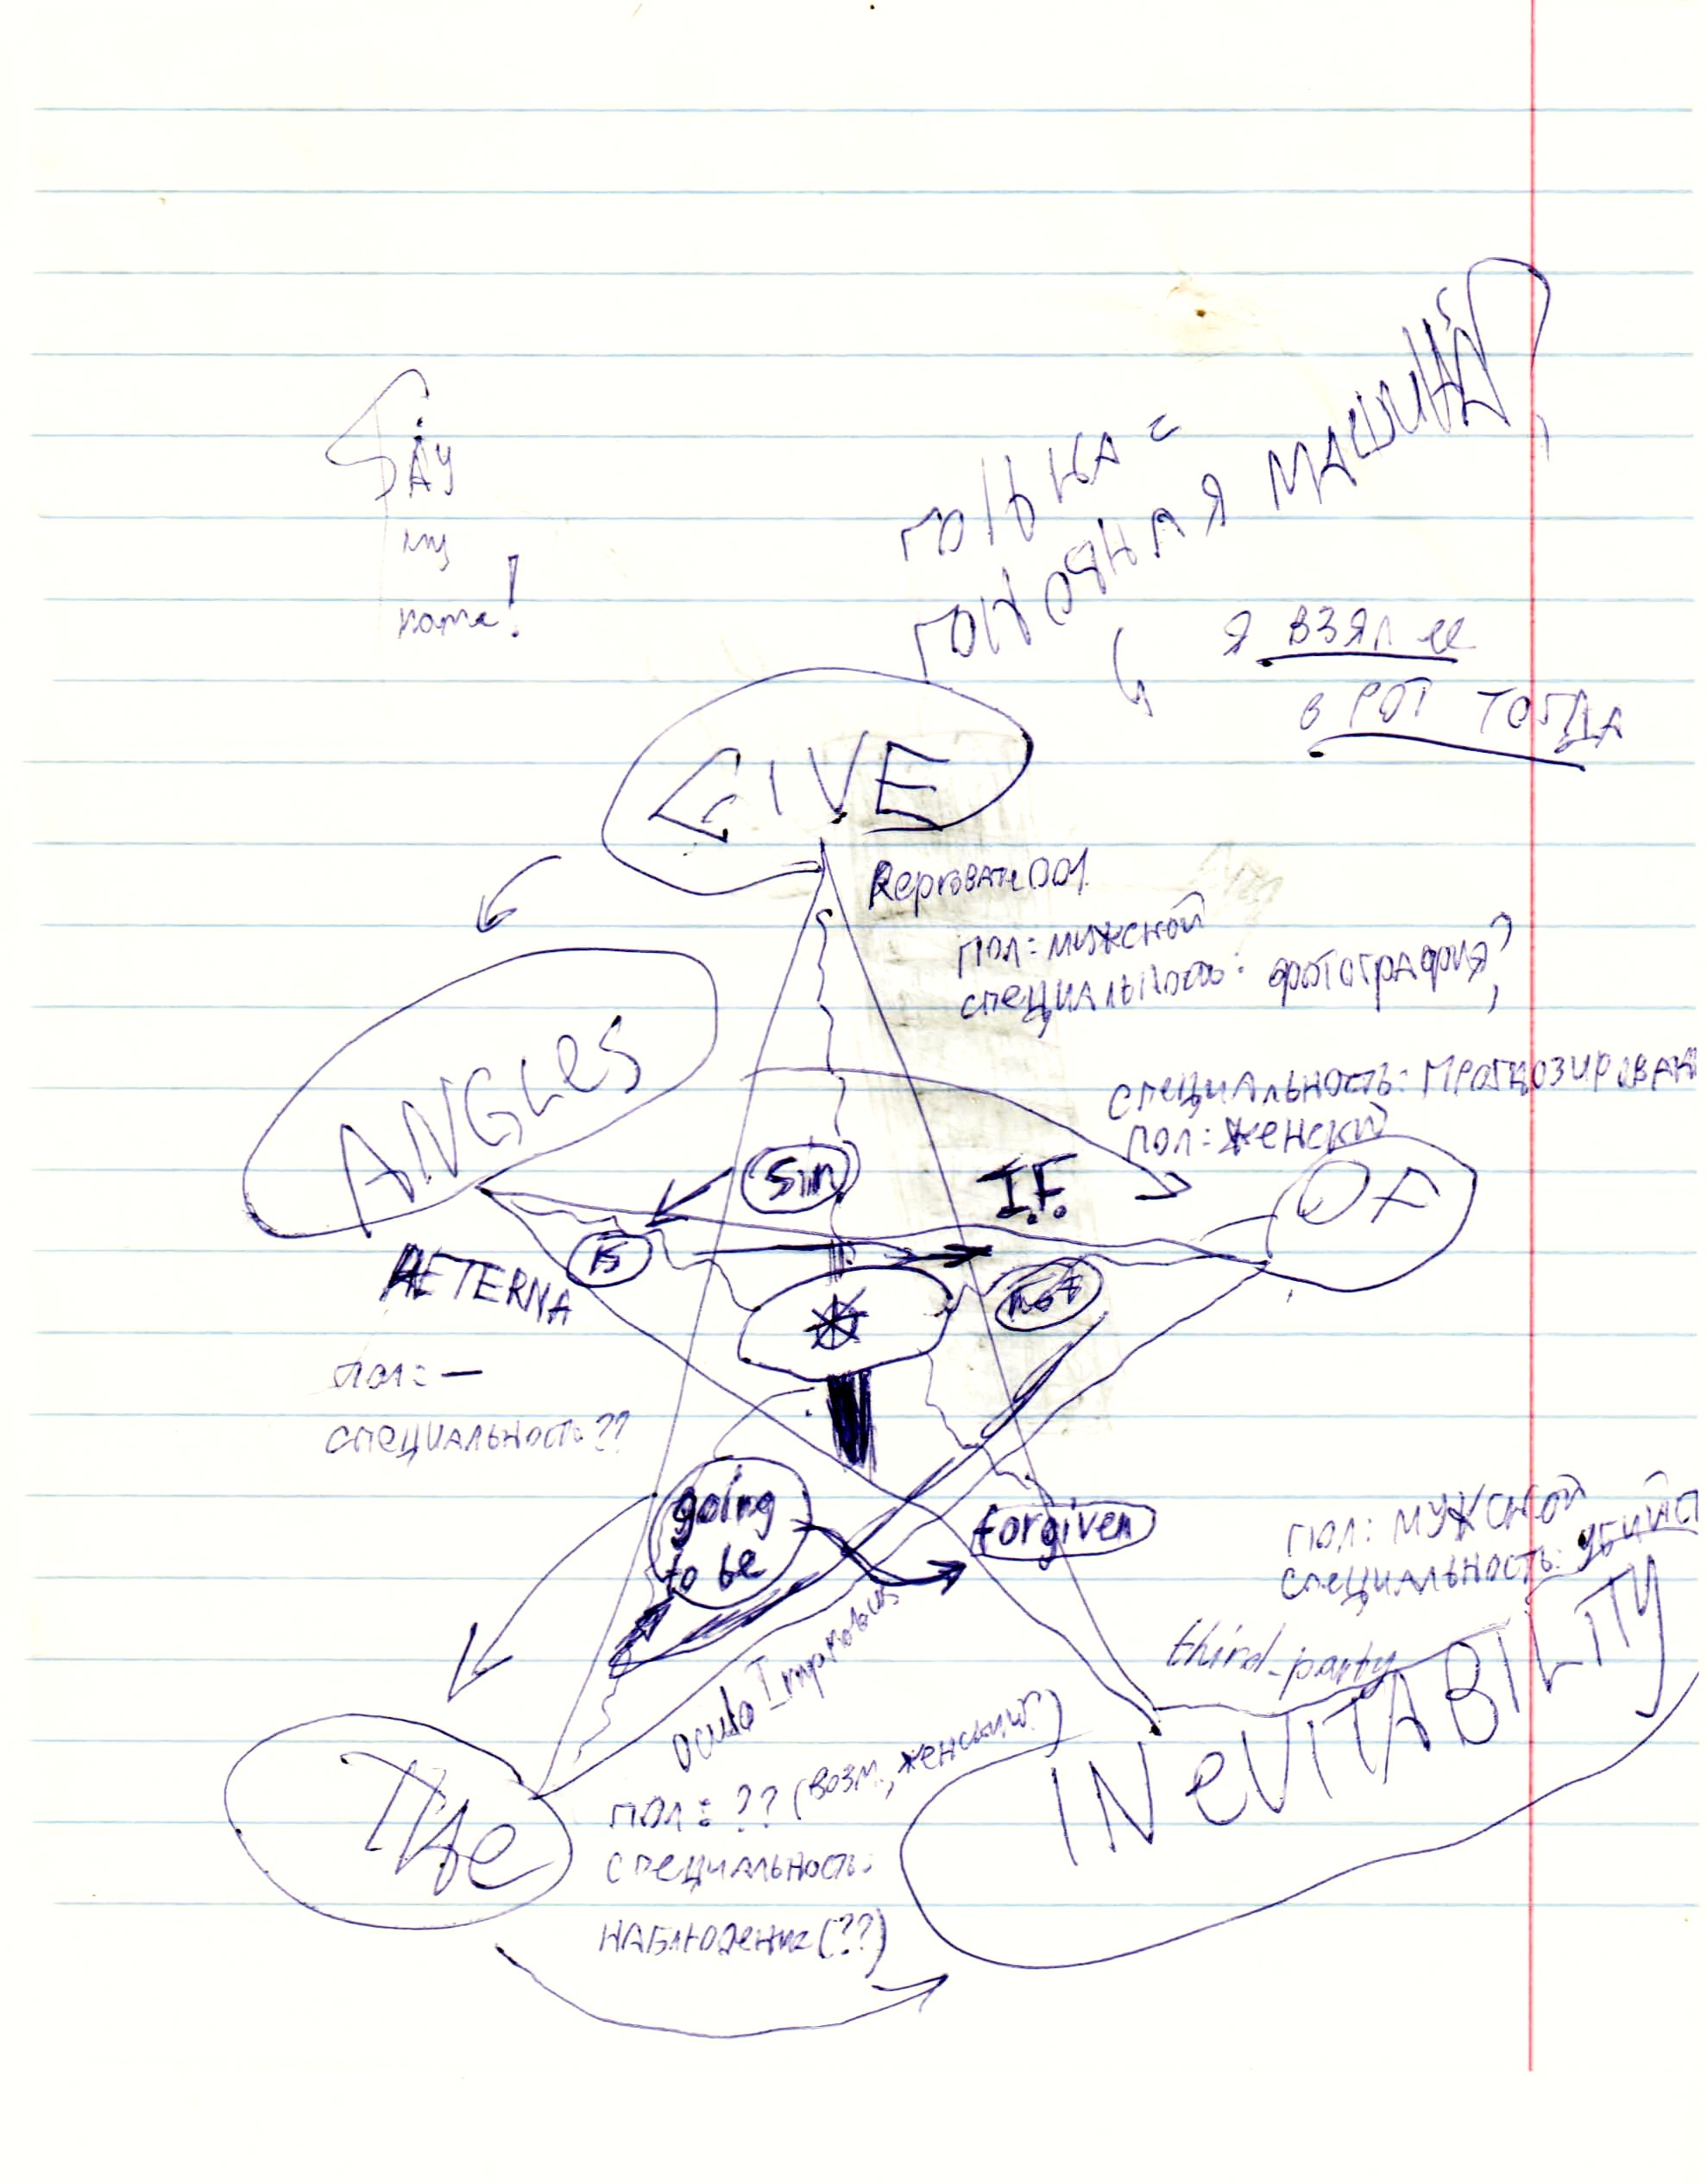 Say
my
name!
ГОЛЬКА =
МАШИНА?
Я ВЗЯЛ ее
в РОТ ТОГДА
GIVE
ReproBate001
ПОЛ = МУЖСКОЙ
СПЕЦИАЛЬНОСТЬ: ФОТОГРАФИЯ?
ANGLeS
СПЕЦИАЛЬНОСТЬ: ПРОГНОЗИРОВАН
ПОЛ = ЖЕНСКИЙ
Sin
I.F.
OF
AETERNA
is
not
ПОЛ = —
СПЕЦИАЛЬНОСТЬ ??
going
to be
forgiven
ПОЛ: МУЖСКОЙ
СПЕЦИАЛЬНОСТЬ: УБИЙС
third-party
INeVITABILITY
Oculo Improbus
THe
ПОЛ = ?? (ВОЗМ., ЖЕНСКИЙ?)
СПЕЦИАЛЬНОСТЬ:
НАБЛЮДЕНИЕ (??)